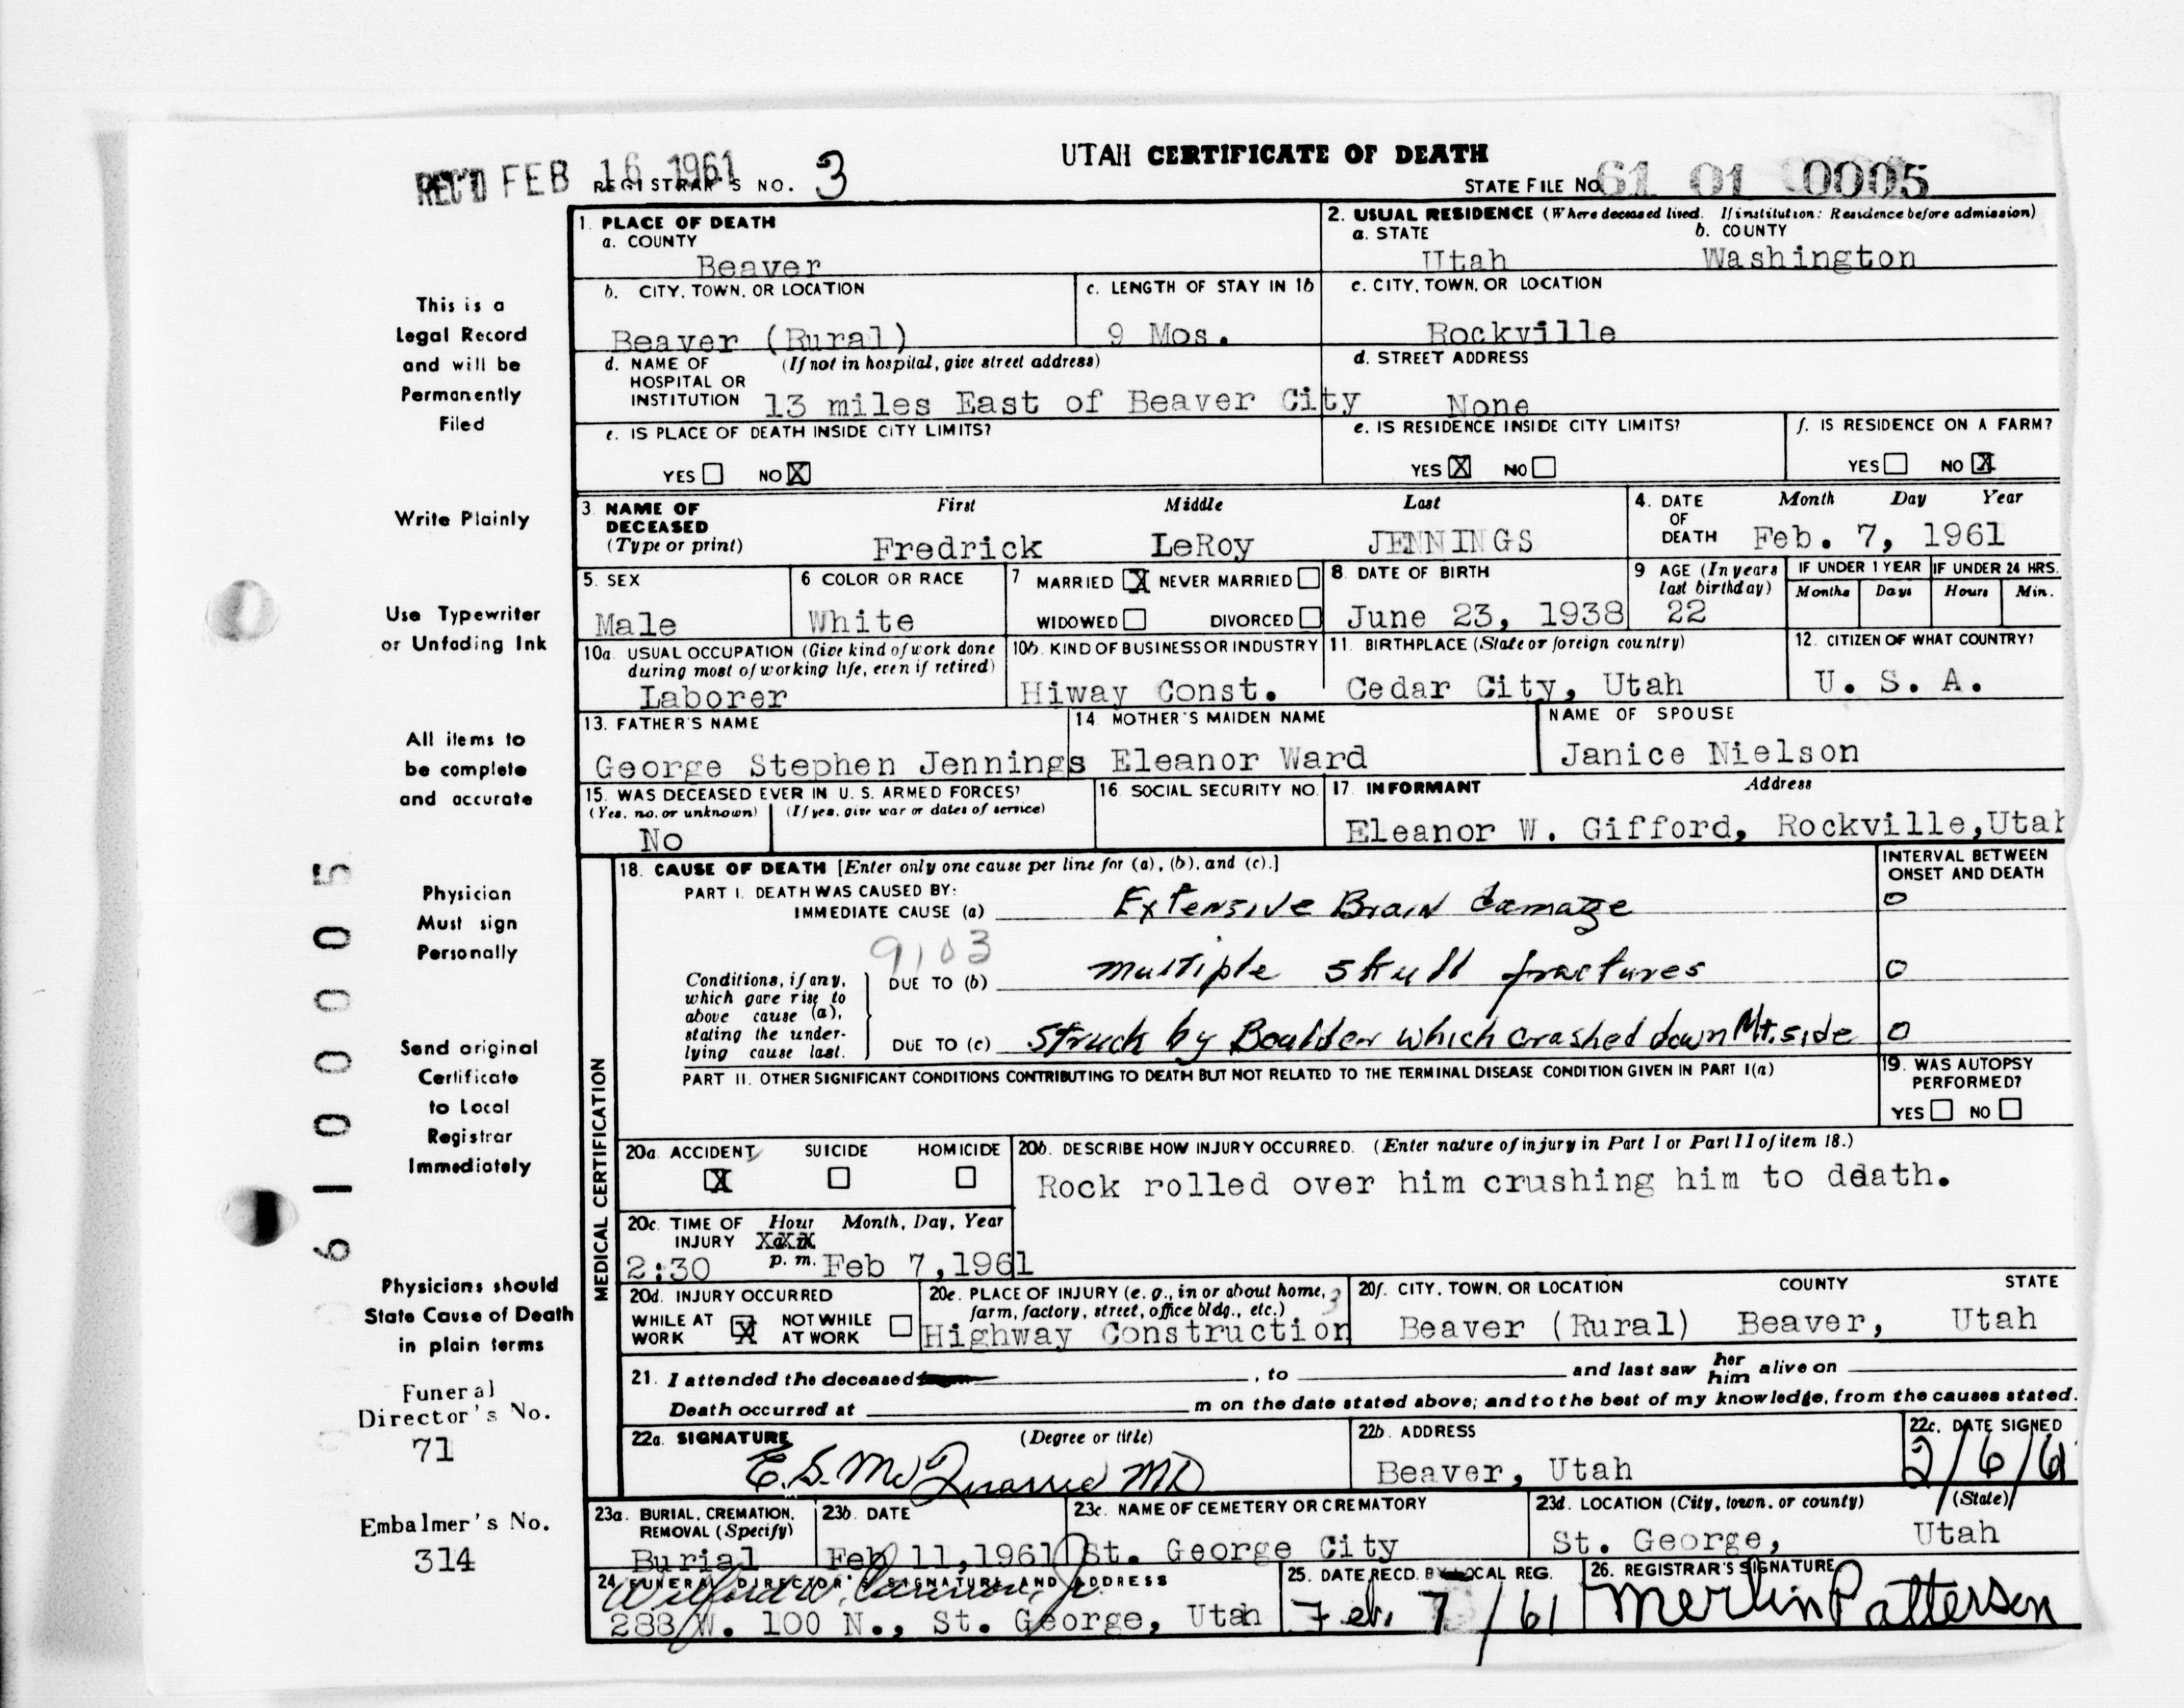 UTAH CERTIFICATE OF DEATH
REC'D FEB 16 1961 REGISTRAR'S NO. 3
STATE FILE NO. 61 01 0005
1. PLACE OF DEATH
a. COUNTY
Beaver
2. USUAL RESIDENCE (Where deceased lived. If institution: Residence before admission)
a. STATE b. COUNTY
Utah Washington
b. CITY, TOWN, OR LOCATION
Beaver (Rural)
c. LENGTH OF STAY IN 1b
9 Mos.
c. CITY, TOWN, OR LOCATION
Rockville
d. NAME OF (If not in hospital, give street address)
HOSPITAL OR
INSTITUTION 13 miles East of Beaver City
d. STREET ADDRESS
None
e. IS PLACE OF DEATH INSIDE CITY LIMITS?
YES NO X
e. IS RESIDENCE INSIDE CITY LIMITS?
YES X NO
f. IS RESIDENCE ON A FARM?
YES NO X
3. NAME OF DECEASED (Type or print)
First Middle Last
Fredrick LeRoy JENNINGS
4. DATE OF DEATH
Month Day Year
Feb. 7, 1961
5. SEX
Male
6 COLOR OR RACE
White
7 MARRIED X NEVER MARRIED
WIDOWED DIVORCED
8. DATE OF BIRTH
June 23, 1938
9 AGE (In years last birthday)
22
IF UNDER 1 YEAR IF UNDER 24 HRS.
Months Days Hours Min.
10a. USUAL OCCUPATION (Give kind of work done
during most of working life, even if retired)
Laborer
10b. KIND OF BUSINESS OR INDUSTRY
Hiway Const.
11. BIRTHPLACE (State or foreign country)
Cedar City, Utah
12. CITIZEN OF WHAT COUNTRY?
U. S. A.
13. FATHER'S NAME
George Stephen Jennings
14. MOTHER'S MAIDEN NAME
Eleanor Ward
NAME OF SPOUSE
Janice Nielson
15. WAS DECEASED EVER IN U. S. ARMED FORCES?
(Yes, no, or unknown) (If yes, give war or dates of service)
No
16. SOCIAL SECURITY NO.
17. INFORMANT Address
Eleanor W. Gifford, Rockville, Utah
MEDICAL CERTIFICATION
18. CAUSE OF DEATH [Enter only one cause per line for (a), (b), and (c).]
INTERVAL BETWEEN
ONSET AND DEATH
PART I. DEATH WAS CAUSED BY:
IMMEDIATE CAUSE (a) Extensive Brain damage 0
9103
Conditions, if any,
which gave rise to
above cause (a),
stating the under-
lying cause last.
DUE TO (b) multiple skull fractures 0
DUE TO (c) Struck by Boulder which crashed down Mt. side 0
PART II. OTHER SIGNIFICANT CONDITIONS CONTRIBUTING TO DEATH BUT NOT RELATED TO THE TERMINAL DISEASE CONDITION GIVEN IN PART I(a)
19. WAS AUTOPSY
PERFORMED?
YES NO
20a. ACCIDENT SUICIDE HOMICIDE
X
20b. DESCRIBE HOW INJURY OCCURRED. (Enter nature of injury in Part I or Part II of item 18.)
Rock rolled over him crushing him to death.
20c. TIME OF INJURY Hour Month, Day, Year
2:30 p. m. Feb 7,1961
20d. INJURY OCCURRED
WHILE AT WORK X NOT WHILE AT WORK
20e. PLACE OF INJURY (e. g., in or about home,
farm, factory, street, office bldg., etc.)
Highway Construction
20f. CITY, TOWN, OR LOCATION COUNTY STATE
Beaver (Rural) Beaver, Utah
21. I attended the deceased , to and last saw her him alive on
Death occurred at m on the date stated above; and to the best of my knowledge, from the causes stated.
22a. SIGNATURE (Degree or title)
E. S. McQuarrie MD
22b. ADDRESS
Beaver, Utah
22c. DATE SIGNED
2/6/61
23a. BURIAL, CREMATION,
REMOVAL (Specify)
Burial
23b. DATE
Feb 11,1961
23c. NAME OF CEMETERY OR CREMATORY
St. George City
23d. LOCATION (City, town, or county) (State)
St. George, Utah
24. FUNERAL DIRECTOR'S SIGNATURE AND ADDRESS
288 W. 100 N., St. George, Utah
25. DATE RECD. BY LOCAL REG.
Feb. 7/61
26. REGISTRAR'S SIGNATURE
Merlin Patterson
This is a
Legal Record
and will be
Permanently
Filed
Write Plainly
Use Typewriter
or Unfading Ink
All items to
be complete
and accurate
Physician
Must sign
Personally
Send original
Certificate
to Local
Registrar
Immediately
Physicians should
State Cause of Death
in plain terms
Funeral
Director's No.
71
Embalmer's No.
314
61 0005